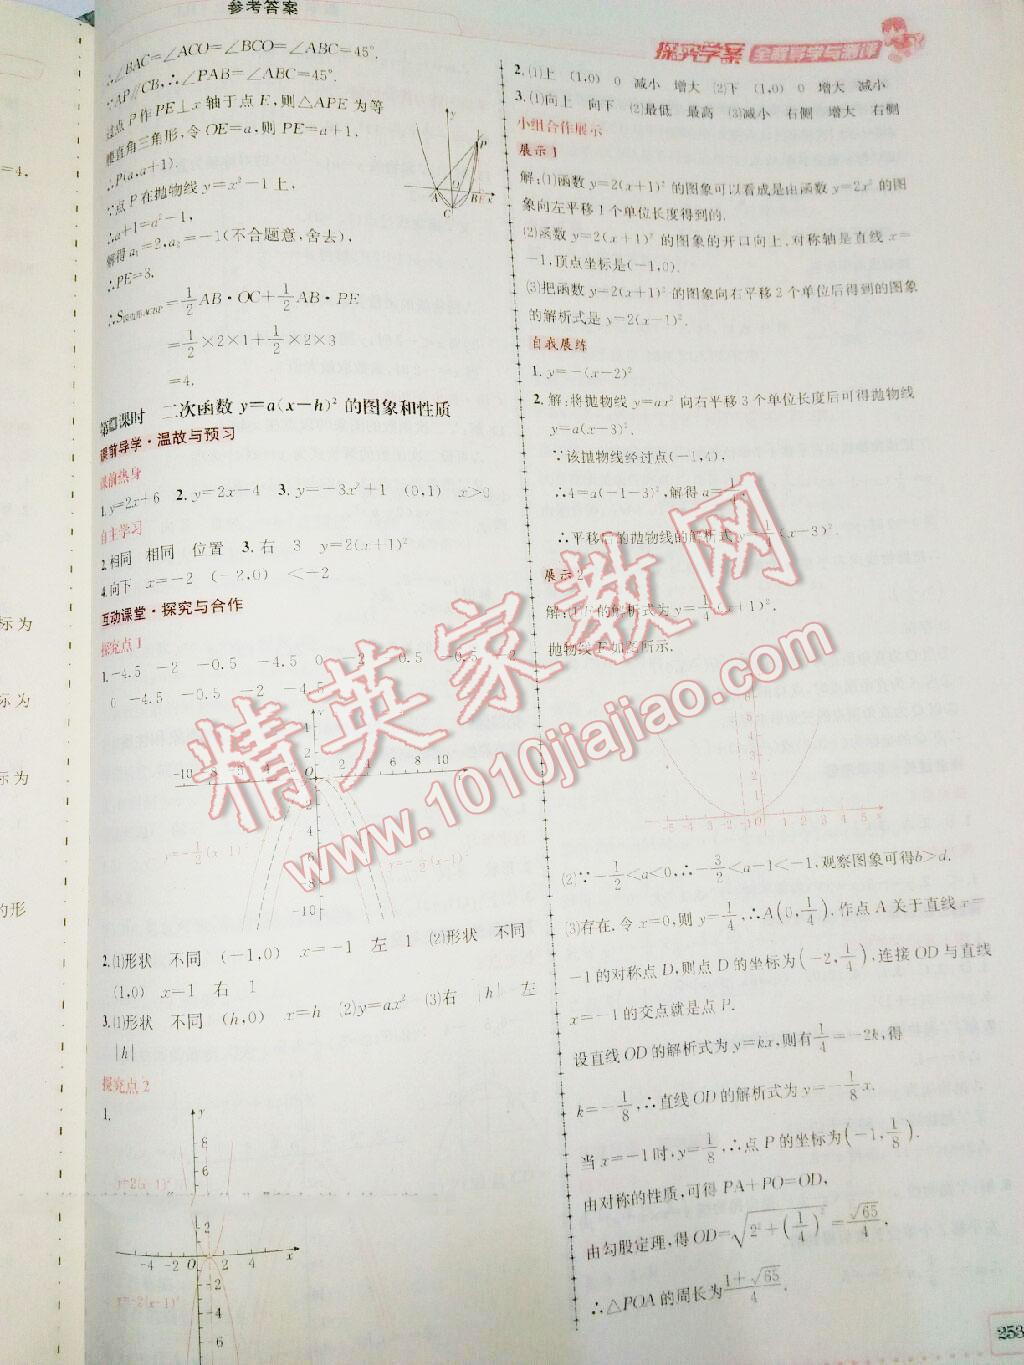 参考答案
探究学案 全程导学与测评
∴∠BAC=∠ACO=∠BCO=∠ABC=45°.
∵AP∥CB,∴∠PAB=∠ABC=45°.
过点P作PE⊥x轴于点E,则△APE为等
腰直角三角形,令OE=a,则PE=a+1.
∴P(a,a+1).
∵点P在抛物线y=x²-1上,
∴a+1=a²-1,
解得a₁=2,a₂=-1(不合题意,舍去).
∴PE=3.
∴S四边形ACBP=1/2AB·OC+1/2AB·PE
=1/2×2×1+1/2×2×3
=4.
课时 二次函数y=a(x-h)²的图象和性质
课前导学·温故与预习
课前热身
1.y=2x+6 2.y=2x-4 3.y=-3x²+1 (0,1) x>0
自主学习
2.相同 相同 位置 3.右 3 y=2(x+1)²
4.向下 x=-2 (-2,0) <-2
互动课堂·探究与合作
探究点1
1.-4.5 -2 -0.5 -4.5 0 -2 0.5 -0.5
0 -4.5 -0.5 -2 -4.5
y
-10 -8 -6 -4 -2 O 2 4 6 8 10 x
4
6
8
-10
2.(1)形状 不同 (-1,0) x=-1 左 1 (2)形状 不同
(1,0) x=1 右 1
3.(1)形状 不同 (h,0) x=h (2)y=ax² (3)右 |h| 左
|h|
探究点2
1.
y
8
6
y=2(x-1)²
2
-4 -2 O 2 4 x
-2
4
6
y=-2(x-1)²
2.(1)上 (1,0) 0 减小 增大 (2)下 (1,0) 0 增大 减小
3.(1)向上 向下 (2)最低 最高 (3)减小 右侧 增大 右侧
小组合作展示
展示1
解:(1)函数y=2(x+1)²的图象可以看成是由函数y=2x²的图
象向左平移1个单位长度得到的.
(2)函数y=2(x+1)²的图象的开口向上,对称轴是直线x=
-1,顶点坐标是(-1,0).
(3)把函数y=2(x+1)²的图象向右平移2个单位后得到的图象
的解析式是y=2(x-1)².
自我展练
1.y=-(x-2)²
2.解:将抛物线y=ax²向右平移3个单位长度后可得抛物线
y=a(x-3)².
∵该抛物线经过点(-1,4),
∴4=a(-1-3)²,解得a=1/4.
∴平移后的抛物线的解析式为y=1/4(x-3)².
展示2
解:(1)的解析式为y=1/4(x+1)².
抛物线如图所示.
(2)∵-1/2<a<0,∴-3/2<a-1<-1,观察图象可得b>d.
(3)存在.令x=0,则y=1/4,∴A(0,1/4).作点A关于直线x=
-1的对称点D,则点D的坐标为(-2,1/4),连接OD与直线
x=-1的交点就是点P.
设直线OD的解析式为y=kx,则有1/4=-2k,得
k=-1/8,∴直线OD的解析式为y=-1/8x.
当x=-1时,y=1/8,∴点P的坐标为(-1,1/8).
由对称的性质,可得PA+PO=OD,
由勾股定理,得OD=√(2²+(1/4)²)=√65/4.
∴△POA的周长为(1+√65)/4.
253
精英家教网
www.1010jiajiao.com